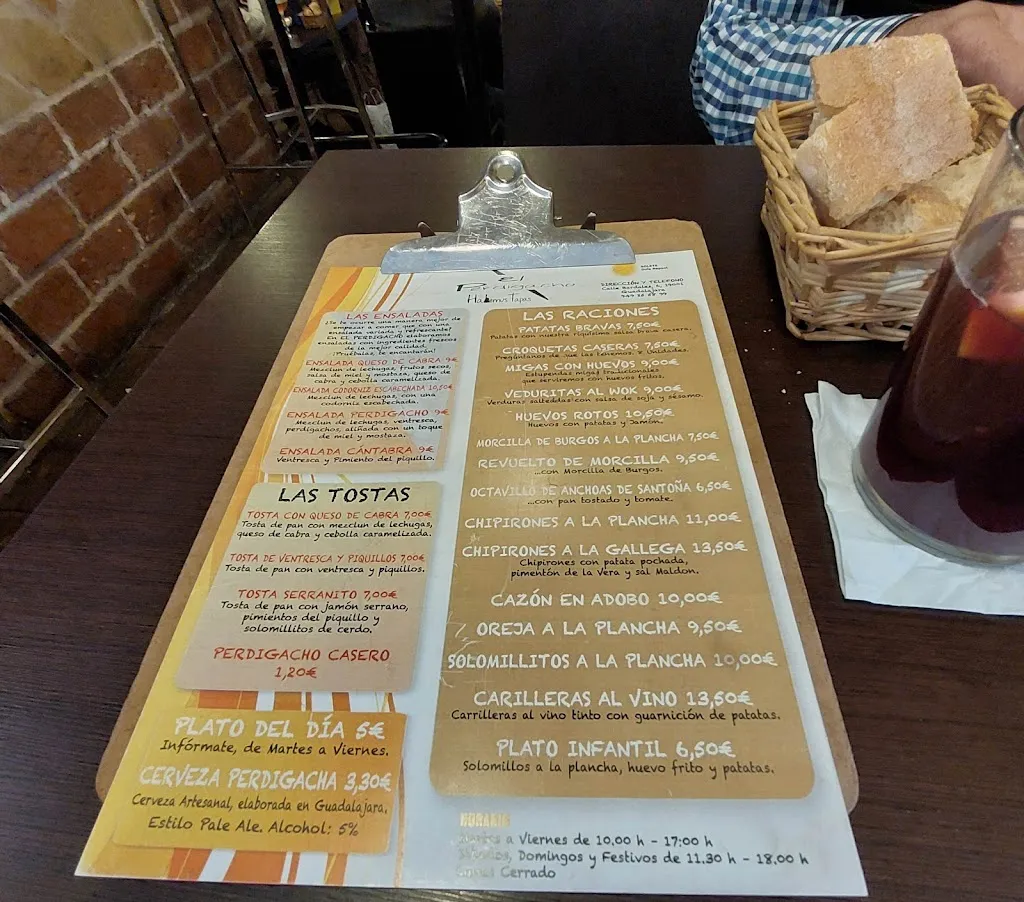 el
Perdigacho
Habemus Tapas
DIRECCIÓN Y TELÉFONO
Guadalajara
LAS ENSALADAS
¿Se te ocurre una manera mejor de
empezar a comer que con una
ensalada variada y refrescante?
En EL PERDIGACHO elaboramos
ensaladas con ingredientes frescos
de la mejor calidad.
¡Pruébalas, te encantarán!
ENSALADA QUESO DE CABRA 9€
Mezclum de lechugas, frutos secos,
salsa de miel y mostaza, queso de
cabra y cebolla caramelizada.
ENSALADA CODORNIZ ESCABECHADA 10,50€
Mezclum de lechugas, con una
codorniz escabechada.
ENSALADA PERDIGACHO 9€
Mezclum de lechugas, ventresca,
perdigachos, aliñada con un toque
de miel y mostaza.
ENSALADA CÁNTABRA 9€
Ventresca y Pimiento del piquillo.
LAS TOSTAS
TOSTA CON QUESO DE CABRA 7,00€
Tosta de pan con mezclum de lechugas,
queso de cabra y cebolla caramelizada.
TOSTA DE VENTRESCA Y PIQUILLOS 7,00€
Tosta de pan con ventresca y piquillos.
TOSTA SERRANITO 7,00€
Tosta de pan con jamón serrano,
pimientos del piquillo y
solomillitos de cerdo.
PERDIGACHO CASERO
1,20€
PLATO DEL DÍA 5€
Infórmate, de Martes a Viernes.
CERVEZA PERDIGACHA 3,30€
Cerveza Artesanal, elaborada en Guadalajara.
Estilo Pale Ale. Alcohol: 5%
LAS RACIONES
PATATAS BRAVAS 7,50€
Patatas con nuestra riquísima salsa brava casera.
CROQUETAS CASERAS 7,50€
Pregúntanos de que las tenemos. 8 Unidades.
MIGAS CON HUEVOS 9,00€
Estupendas migas tradicionales
que serviremos con huevos fritos.
VEDURITAS AL WOK 9,00€
Verduras salteadas con salsa de soja y sésamo.
HUEVOS ROTOS 10,50€
Huevos con patatas y Jamón.
MORCILLA DE BURGOS A LA PLANCHA 7,50€
REVUELTO DE MORCILLA 9,50€
...con Morcilla de Burgos.
OCTAVILLO DE ANCHOAS DE SANTOÑA 6,50€
...con pan tostado y tomate.
CHIPIRONES A LA PLANCHA 11,00€
CHIPIRONES A LA GALLEGA 13,50€
Chipirones con patata pochada,
pimentón de la Vera y sal Maldon.
CAZÓN EN ADOBO 10,00€
OREJA A LA PLANCHA 9,50€
SOLOMILLITOS A LA PLANCHA 10,00€
CARILLERAS AL VINO 13,50€
Carrilleras al vino tinto con guarnición de patatas.
PLATO INFANTIL 6,50€
Solomillos a la plancha, huevo frito y patatas.
HORARIO
Martes a Viernes de 10.00 h - 17:00 h
Sábados, Domingos y Festivos de 11.30 h - 18.00 h
Cerrado